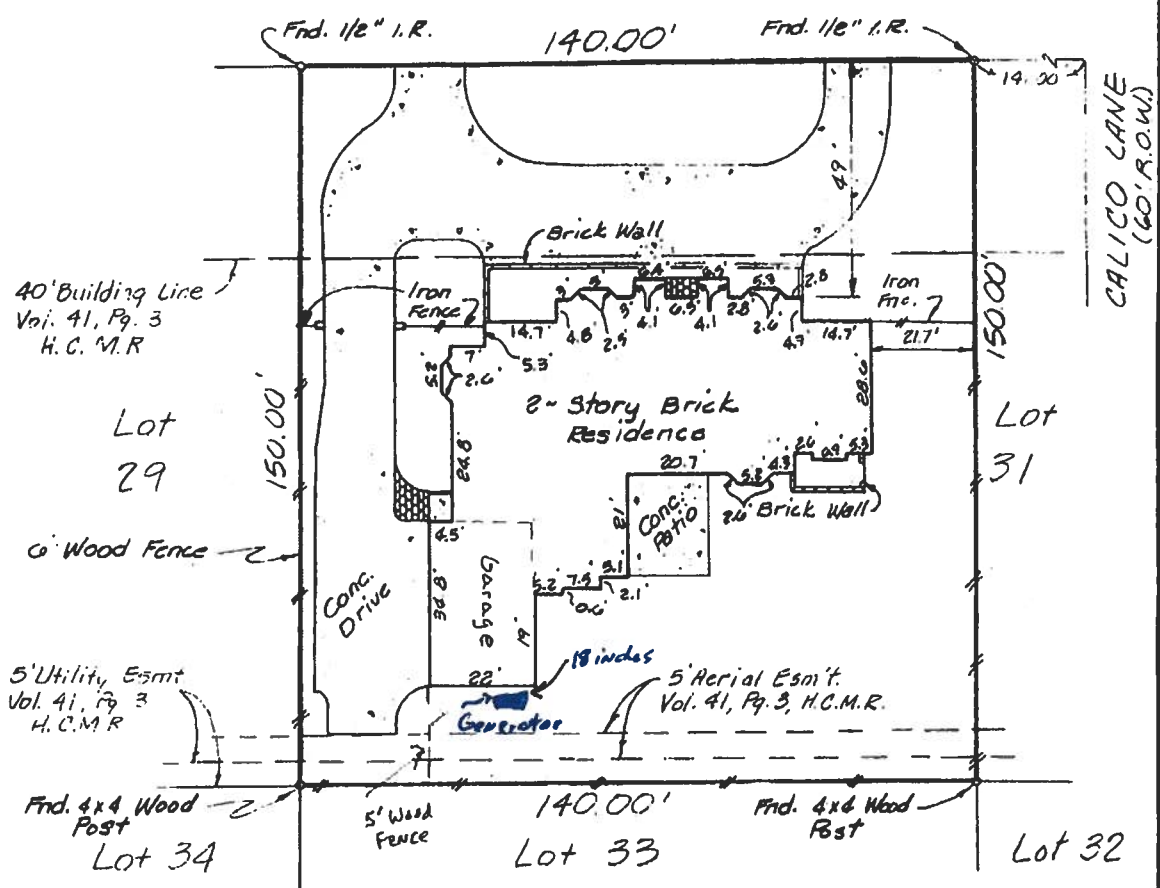 Fnd. 1/2" I.R.
140.00'
Fnd. 1/2" I.R.
14.00
CALICO LANE
(60' R.O.W.)
49'
Brick Wall
40' Building Line
Vol. 41, Pg. 3
H.C.M.R
Iron
Fence
Iron
Fnc.
14.7'
4.8
3'
2.5
3'
4.1
6.5'
4.1
2.8'
5.8
2.6'
2.8
4.7'
14.7'
21.7'
150.00'
7'
5.3'
5.2
2.6'
28.6'
2-Story Brick
Residence
Lot
29
150.00'
Lot
31
24.8'
20.7
5.2
4.3
2.6'
5.3
Brick Wall
21
Conc.
Patio
4.5'
6' Wood Fence
Conc.
Drive
Garage
19'
5.2
7.5
5.1
2.1'
0.6'
22'
18 inches
Generator
5' Utility Esmt
Vol. 41, Pg 3
H.C.M.R
5' Aerial Esm't.
Vol. 41, Pg. 3, H.C.M.R.
Fnd. 4x4 Wood
Post
5' Wood
Fence
140.00'
Fnd. 4x4 Wood
Post
Lot 34
Lot 33
Lot 32